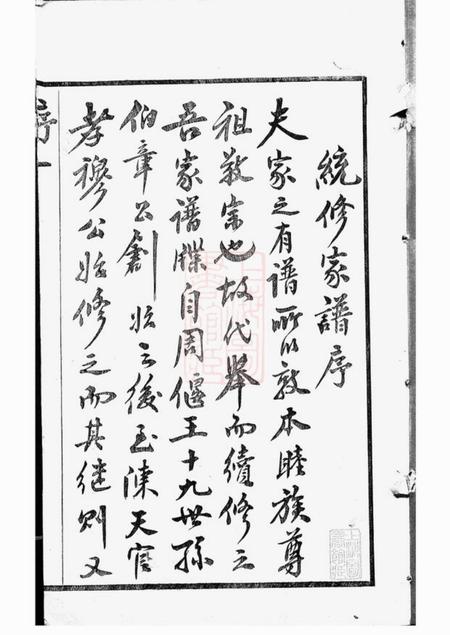 統修家譜序
夫家之有譜所以敦本睦族尊
祖敬宗也故代舉而續修之
吾家譜牒自周偃王十九世孫
伯章公創始云後至陳天官
孝穆公始修之而其繼則又
序一